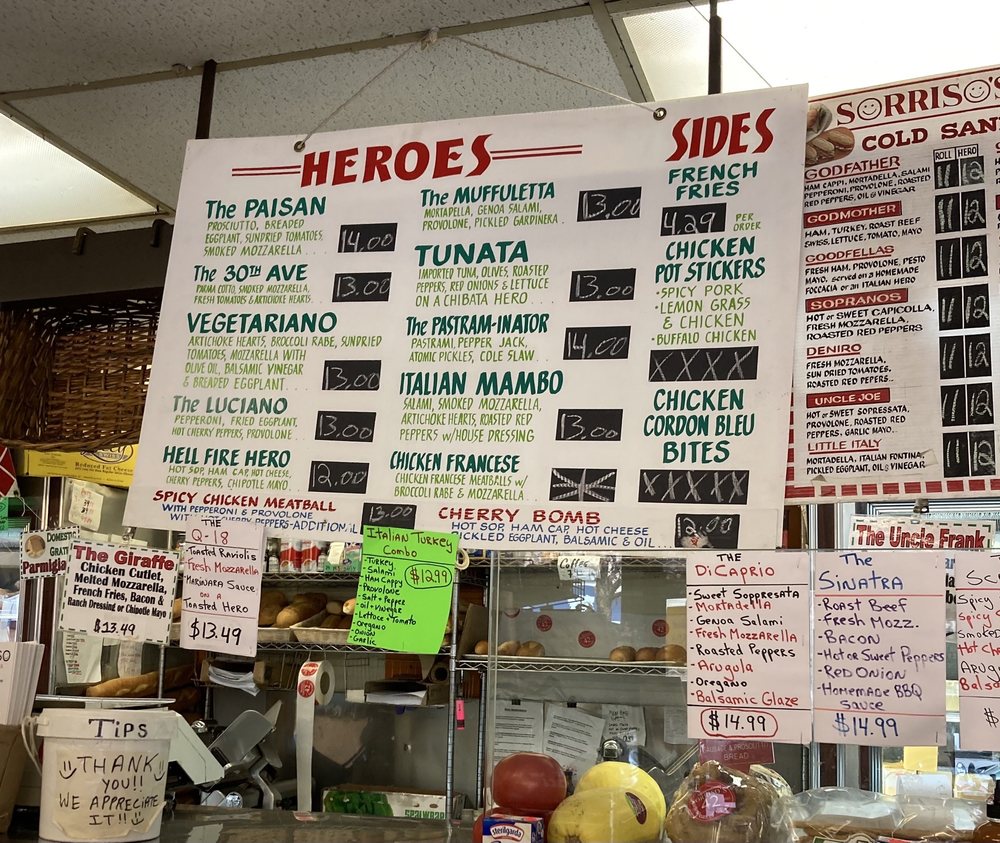 HEROES
The PAISAN
PROSCIUTTO, BREADED
EGGPLANT, SUNDRIED TOMATOES,
SMOKED MOZZARELLA...
14.00
The 30TH AVE
PARMA COTTO, SMOKED MOZZARELLA,
FRESH TOMATOES & ARTICHOKE HEARTS...
13.00
VEGETARIANO
ARTICHOKE HEARTS, BROCCOLI RABE, SUNDRIED
TOMATOES, MOZZARELLA WITH
OLIVE OIL, BALSAMIC VINEGAR
& BREADED EGGPLANT...
13.00
The LUCIANO
PEPPERONI, FRIED EGGPLANT,
HOT CHERRY PEPPERS, PROVOLONE
13.00
HELL FIRE HERO
HOT SOP, HAM CAP, HOT CHEESE,
CHERRY PEPPERS, CHIPOTLE MAYO.
12.00
SPICY CHICKEN MEATBALL
WITH PEPPERONI & PROVOLONE
WITH HOT CHERRY PEPPERS-ADDITIONAL
13.00
The MUFFULETTA
MORTADELLA, GENOA SALAMI,
PROVOLONE, PICKLED GARDINERA...
13.00
TUNATA
IMPORTED TUNA, OLIVES, ROASTED
PEPPERS, RED ONIONS & LETTUCE
ON A CHIBATA HERO...
13.00
The PASTRAM-INATOR
PASTRAMI, PEPPER JACK,
ATOMIC PICKLES, COLE SLAW...
14.00
ITALIAN MAMBO
SALAMI, SMOKED MOZZARELLA,
ARTICHOKE HEARTS, ROASTED RED
PEPPERS w/HOUSE DRESSING
13.00
CHICKEN FRANCESE
CHICKEN FRANCESE MEATBALLS w/
BROCCOLI RABE & MOZZARELLA
CHERRY BOMB
HOT SOP, HAM CAP, HOT CHEESE
PICKLED EGGPLANT, BALSAMIC & OIL...
12.00
SIDES
FRENCH
FRIES
4.29 PER
ORDER
CHICKEN
POT STICKERS
•SPICY PORK
•LEMON GRASS
& CHICKEN
•BUFFALO CHICKEN
XXXX
CHICKEN
CORDON BLEU
BITES
XXXXX
SORRISO'S
COLD SAN
ROLL HERO
GODFATHER
HAM CAPPI, MORTADELLA, SALAMI
PEPPERONI, PROVOLONE, ROASTED
RED PEPPERS, OIL & VINEGAR
11 12
GODMOTHER
HAM, TURKEY, ROAST BEEF
SWISS, LETTUCE, TOMATO, MAYO
11 12
GOODFELLAS
FRESH HAM, PROVOLONE, PESTO
MAYO. served on a HOMEMADE
FOCCACIA or an ITALIAN HERO
11 12
SOPRANOS
HOT or SWEET CAPICOLLA,
FRESH MOZZARELLA,
ROASTED RED PEPPERS
11 12
DENIRO
FRESH MOZZARELLA,
SUN DRIED TOMATOES,
ROASTED RED PEPERS.
11 12
UNCLE JOE
HOT or SWEET SOPRESSATA,
PROVOLONE, ROASTED RED
PEPPERS, GARLIC MAYO.
11 12
LITTLE ITALY
MORTADELLA, ITALIAN FONTINA,
PICKLED EGGPLANT, OIL & VINEGAR
11 12
DOMESTIC
GRATE
Parmigia
The Giraffe
Chicken Cutlet,
Melted Mozzarella,
French Fries, Bacon &
Ranch Dressing or Chipotle Mayo
$13.49
THE
Q-18
Toasted Raviolis
Fresh Mozzarella
Marinara Sauce
ON A
Toasted Hero
$13.49
Italian Turkey
Combo
$12.99
•Turkey
•Salami
•Ham Cappy
•Provolone
•Salt + Pepper
•Oil + Vinegar
•Lettuce + Tomato
•Oregano
•Onion
•Garlic
Coffee
The Uncle Frank
THE
DiCAPRIO
•Sweet Soppresata
•Mortadella
Genoa Salami
•Fresh Mozzarella
•Roasted Peppers
•Arugula
•Oregano
•Balsamic Glaze
$14.99
The
SINATRA
-Roast Beef
-Fresh Mozz.
-Bacon
-Hot or Sweet Peppers
-Red Onion
-Homemade BBQ
Sauce
$14.99
Spicy
Spicy
Smoke
Hot Ch
Balsa
$
TIPS
THANK
YOU!!
WE APPRECIATE
IT!!
BREAD
Sterilgarda